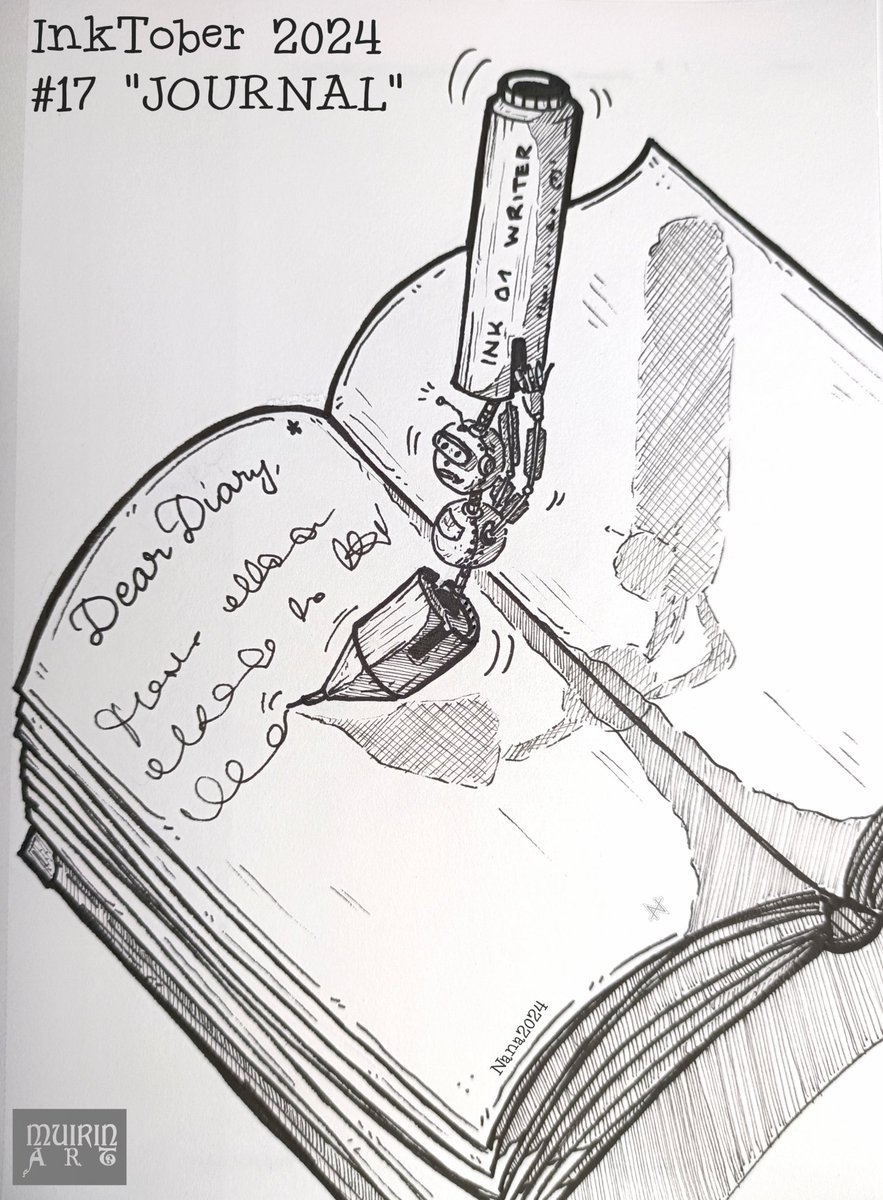 InkTober 2024
#17 "JOURNAL"
INK 01 WRITER
Dear Diary,
Nana2024
MUIRIN
ART